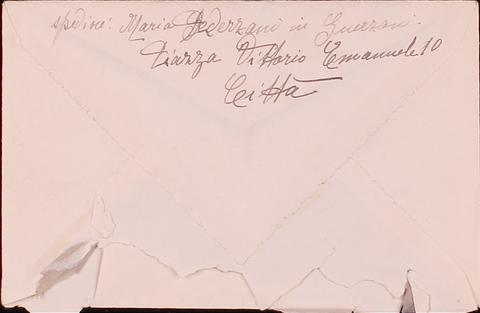 spedisce: Maria Federzani in Guerzoni.
Piazza Vittorio Emanuele 10
Città